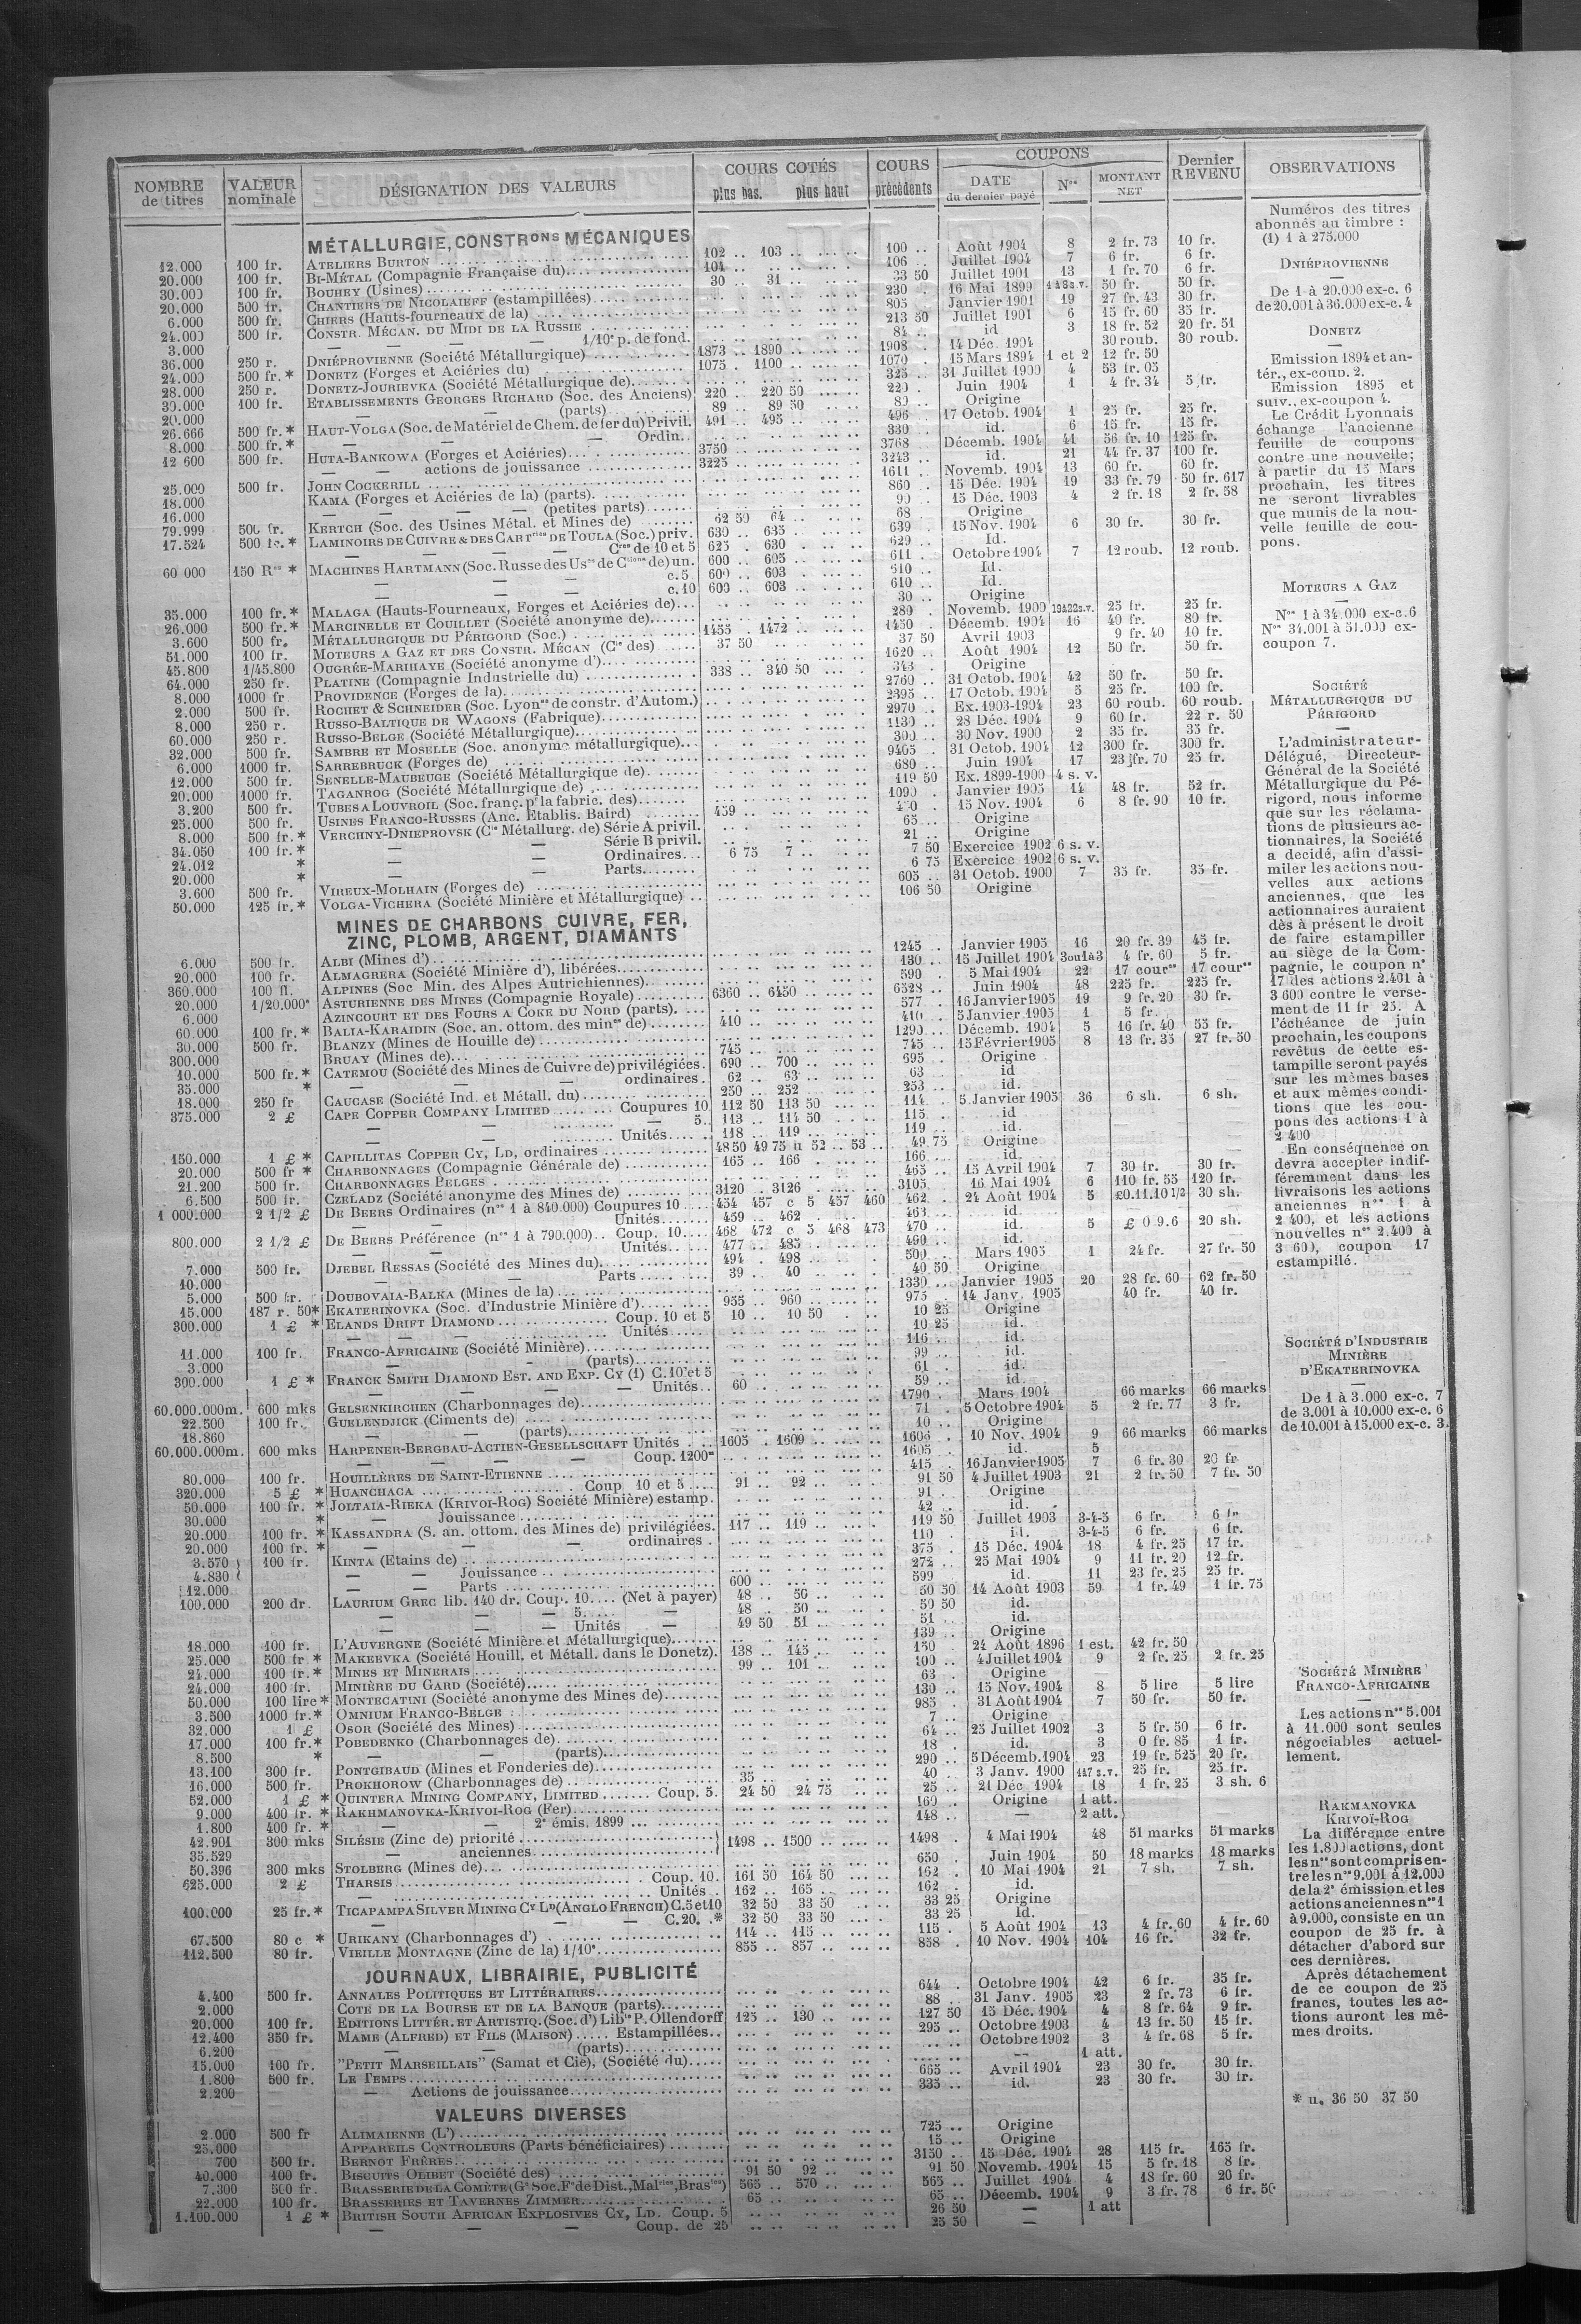 NOMBRE de titres | VALEUR nominale | DÉSIGNATION DES VALEURS | COURS COTÉS plus bas. plus haut | COURS précédents | COUPONS DATE du dernier payé | Nos | MONTANT NET | Dernier REVENU | OBSERVATIONS
MÉTALLURGIE, CONSTRons MÉCANIQUES
12.000 100 fr. ATELIERS BURTON 102 .. 103 .. 100 .. Août 1904 8 2 fr. 73 10 fr.
20.000 100 fr. BI-MÉTAL (Compagnie Française du) 104 .. 106 .. Juillet 1904 7 6 fr. 6 fr.
30.000 100 fr. BOUHEY (Usines) 30 .. 31 .. 33 50 Juillet 1901 13 1 fr. 70 6 fr.
20.000 500 fr. CHANTIERS DE NICOLAIEFF (estampillées) 230 . 16 Mai 1899 50 fr. 50 fr.
6.000 500 fr. CHIERS (Hauts-fourneaux de la) 805 .. Janvier 1901 19 27 fr. 43 30 fr.
24.000 500 fr. CONSTR. MÉCAN. DU MIDI DE LA RUSSIE 213 50 Juillet 1901 6 15 fr. 60 35 fr.
3.000 — — — — 1/10e p. de fond. 84 .. id 3 18 fr. 52 20 fr. 51
36.000 250 r. DNIÉPROVIENNE (Société Métallurgique) 1873 .. 1890 .. 1908 .. 14 Déc. 1904 30 roub. 30 roub.
24.000 500 fr. * DONETZ (Forges et Aciéries du) 1075 . 1100 .. 1070 . 15 Mars 1894 1 et 2 12 fr. 50
28.000 250 r. DONETZ-JOURIEVKA (Société Métallurgique de) 325 .. 31 Juillet 1900 4 53 fr. 05
30.000 100 fr. ETABLISSEMENTS GEORGES RICHARD (Soc. des Anciens) 220 .. 220 50 220 . Juin 1904 1 4 fr. 34 5 fr.
20.000 — — (parts) 89 .. 89 50 89 .. Origine
26.666 500 fr. * HAUT-VOLGA (Soc. de Matériel de Chem. de fer du) Privil. 491 .. 495 .. 496 .. 17 Octob. 1904 1 25 fr. 25 fr.
8.000 500 fr. * — — — Ordin. 330 .. id. 6 15 fr. 15 fr.
12 600 500 fr. HUTA-BANKOWA (Forges et Aciéries) 3750 3768 Décemb. 1904 41 56 fr. 10 125 fr.
— — actions de jouissance 3225 3243 .. id. 21 44 fr. 37 100 fr.
25.000 500 fr. JOHN COCKERILL 1611 .. Novemb. 1904 13 60 fr. 60 fr.
18.000 KAMA (Forges et Aciéries de la) (parts) 860 .. 15 Déc. 1904 19 33 fr. 79 50 fr. 617
16.000 — — — — (petites parts) 90 .. 15 Déc. 1903 4 2 fr. 18 2 fr. 58
79.999 500 fr. KERTCH (Soc. des Usines Métal. et Mines de) 62 50 64 .. 68 Origine
17.524 500 fr. * LAMINOIRS DE CUIVRE & DES CARTries DE TOULA (Soc.) priv. 630 .. 635 . 639 . 15 Nov. 1904 6 30 fr. 30 fr.
— — — — Cres de 10 et 5 625 . 630 . 629 .. Id.
60 000 150 Res * MACHINES HARTMANN (Soc. Russe des Uses de Ctions de) un. 600 .. 605 .. 611 . Octobre 1904 7 12 roub. 12 roub.
— — — c. 5 600 .. 603 . 610 .. Id.
— — — c. 10 600 .. 603 .. 610 .. Id.
35.000 100 fr. * MALAGA (Hauts-Fourneaux, Forges et Aciéries de) 30 .. Origine
26.000 500 fr. * MARCINELLE ET COUILLET (Société anonyme de) 280 . Novemb. 1900 25 fr. 25 fr.
3.600 500 fr. MÉTALLURGIQUE DU PÉRIGORD (Soc.) 1455 . 1472 .. 1450 . Décemb. 1904 16 40 fr. 80 fr.
51.000 100 fr. MOTEURS A GAZ ET DES CONSTR. MÉCAN (Cie des) 37 50 37 50 Avril 1903 9 fr. 40 10 fr.
45.800 1/45.800 OUGRÉE-MARIHAYE (Société anonyme d') 1620 .. Août 1904 12 50 fr. 50 fr.
64.000 250 fr. PLATINE (Compagnie Industrielle du) 338 .. 340 50 343 . Origine
8.000 1000 fr. PROVIDENCE (Forges de la) 2760 .. 31 Octob. 1904 42 50 fr. 50 fr.
2.000 500 fr. ROCHET & SCHNEIDER (Soc. Lyonse de constr. d'Autom.) 2395 .. 17 Octob. 1904 5 25 fr. 100 fr.
8.000 250 r. RUSSO-BALTIQUE DE WAGONS (Fabrique) 2970 .. Ex. 1903-1904 23 60 roub. 60 roub.
60.000 250 r. RUSSO-BELGE (Société Métallurgique) 1130 .. 28 Déc. 1904 9 60 fr. 22 r. 50
32.000 500 fr. SAMBRE ET MOSELLE (Soc. anonyme métallurgique) 300 .. 30 Nov. 1900 2 35 fr. 35 fr.
6.000 1000 fr. SARREBRUCK (Forges de) 9405 .. 31 Octob. 1904 12 300 fr. 300 fr.
12.000 500 fr. SENELLE-MAUBEUGE (Société Métallurgique de) 680 .. Juin 1904 17 23 fr. 70 25 fr.
20.000 1000 fr. TAGANROG (Société Métallurgique de) 119 50 Ex. 1899-1900 4 s. v.
3.200 500 fr. TUBES A LOUVROIL (Soc. franç. pr la fabric. des) 1090 . Janvier 1905 14 48 fr. 52 fr.
25.000 500 fr. USINES FRANCO-RUSSES (Anc. Etablis. Baird) 459 .. 15 Nov. 1904 6 8 fr. 90 10 fr.
8.000 500 fr. * VERCHNY-DNIEPROVSK (Cie Métallurg. de) Série A privil. 65 .. Origine
34.050 100 fr. * — — Série B privil. 21 .. Origine
24.012 * — — Ordinaires 6 75 7 .. 7 50 Exercice 1902 6 s. v.
20.000 * — — Parts 6 75 Exercice 1902 6 s. v.
3.600 500 fr. VIREUX-MOLHAIN (Forges de) 605 .. 31 Octob. 1900 7 35 fr. 35 fr.
50.000 125 fr. * VOLGA-VICHERA (Société Minière et Métallurgique) 106 50 Origine
MINES DE CHARBONS, CUIVRE, FER,
ZINC, PLOMB, ARGENT, DIAMANTS
6.000 500 fr. ALBI (Mines d') 1245 . Janvier 1905 16 20 fr. 39 45 fr.
20.000 100 fr. ALMAGRERA (Société Minière d'), libérées 130 .. 15 Juillet 1904 3 ou 1 à 3 4 fr. 60 5 fr.
360.000 100 fl. ALPINES (Soc Min. des Alpes Autrichiennes) 590 . 5 Mai 1904 22 17 coures 17 coures
20.000 1/20.000e ASTURIENNE DES MINES (Compagnie Royale) 6360 .. 6450 .. 6528 .. Juin 1904 48 225 fr. 225 fr.
6.000 AZINCOURT ET DES FOURS A COKE DU NORD (parts) 577 . 16 Janvier 1905 19 9 fr. 20 30 fr.
60.000 100 fr. * BALIA-KARAIDIN (Soc. an. ottom. des mines de) 410 .. 410 .. 5 Janvier 1905 1 5 fr.
30.000 500 fr. BLANZY (Mines de Houille de) 1290 .. Décemb. 1904 5 16 fr. 40 55 fr.
300.000 BRUAY (Mines de) 745 .. 745 .. 15 Février 1905 8 13 fr. 35 27 fr. 50
10.000 500 fr. * CATEMOU (Société des Mines de Cuivre de) privilégiées. 690 .. 700 .. 695 .. Origine
35.000 * — — — ordinaires. 62 .. 63 .. 63 id
18.000 250 fr CAUCASE (Société Ind. et Métall. du) 250 .. 252 .. 253 .. id.
375.000 2 £ CAPE COPPER COMPANY LIMITED Coupures 10 112 50 113 50 114 .. 5 Janvier 1905 36 6 sh. 6 sh.
— — — 5.. 113 .. 114 50 115 .. id
— — Unités 118 .. 119 .. 119 .. id.
150.000 1 £ * CAPILLITAS COPPER CY, LD, ordinaires 48 50 49 75 u 52 .. 53 .. 49 75 Origine
20.000 500 fr * CHARBONNAGES (Compagnie Générale de) 165 .. 166 . 166 .. id.
21.200 500 fr. CHARBONNAGES BELGES 465 .. 15 Avril 1904 7 30 fr. 30 fr.
6.500 500 fr. CZELADZ (Société anonyme des Mines de) 3120 .. 3126 3105 16 Mai 1904 6 110 fr. 55 120 fr.
1 000.000 2 1/2 £ DE BEERS Ordinaires (nos 1 à 840.000) Coupures 10 454 457 c 5 457 460 462 .. 24 Août 1904 5 £0.11.10 1/2 30 sh.
Unités 459 .. 462 . 463 .. id.
800.000 2 1/2 £ DE BEERS Préférence (nos 1 à 790.000) Coup. 10 468 472 c 5 468 473 470 .. id. 5 £ 0 9.6 20 sh.
Unités 477 .. 485 .. 490 .. id.
7.000 500 fr. DJEBEL RESSAS (Société des Mines du) 494 . 498 .. 500 . Mars 1905 1 24 fr. 27 fr. 50
10.000 — — Parts 39 . 40 .. 40 50 Origine
5.000 500 fr. DOUBOVAIA-BALKA (Mines de la) 1330 .. Janvier 1905 20 28 fr. 60 62 fr. 50
15.000 187 r. 50* EKATERINOVKA (Soc. d'Industrie Minière d') 955 .. 960 .. 975 . 14 Janv. 1905 40 fr. 40 fr.
300.000 1 £ * ELANDS DRIFT DIAMOND Coup. 10 et 5 10 .. 10 50 10 25 Origine
— — — Unités 10 25 id.
11.000 100 fr. FRANCO-AFRICAINE (Société Minière) 116 .. id.
3.000 — - (parts) 99 .. id.
300.000 1 £ * FRANCK SMITH DIAMOND EST. AND EXP. CY (1) C. 10 et 5 61 . id.
— — — — Unités 60 .. 59 .. id.
60.000.000m. 600 mks GELSENKIRCHEN (Charbonnages de) 1790 . Mars 1904 66 marks 66 marks
22.500 100 fr. GUELENDJICK (Ciments de) 71 . 5 Octobre 1904 5 2 fr. 77 3 fr.
18.860 — — (parts) 10 .. Origine
60.000.000m. 600 mks HARPENER-BERGBAU-ACTIEN-GESELLSCHAFT Unités 1605 . 1609 .. 1606 . 10 Nov. 1904 9 66 marks 66 marks
— — — — Coup. 1200m 1605 .. id. 5
80.000 100 fr. HOUILLÈRES DE SAINT-ETIENNE 415 . 16 Janvier 1905 7 6 fr. 30 20 fr
320.000 5 £ * HUANCHACA Coup 10 et 5 91 .. 92 .. 91 50 4 Juillet 1903 21 2 fr. 50 7 fr. 50
50.000 100 fr. * JOLTAIA-RIEKA (KRIVOI-ROG) Société Minière) estamp. 91 .. Origine
30.000 * — Jouissance 42 .. id.
20.000 100 fr. * KASSANDRA (S. an. ottom. des Mines de) privilégiées. 117 .. 119 .. 119 50 Juillet 1903 3-4-5 6 fr. 6 fr
20.000 100 fr. * — — — ordinaires . 110 . id. 3-4-5 6 fr. 6 fr.
3.570 100 fr. KINTA (Etains de) 375 . 15 Déc. 1904 18 4 fr. 25 17 fr.
4.830 — — Jouissance 272 .. 25 Mai 1904 9 11 fr. 20 12 fr.
12.000 — — Parts 600 .. 599 id. 11 23 fr. 25 25 fr.
100.000 200 dr. LAURIUM GREC lib. 140 dr. Coup. 10 (Net à payer) 48 .. 50 .. 50 50 14 Août 1903 59 1 fr. 49 1 fr. 75
— — — 5 — 48 . 50 .. 50 50 id.
— — — Unités — 49 50 51 .. 51 id.
18.000 100 fr. L'AUVERGNE (Société Minière et Métallurgique) 139 .. Origine
25.000 500 fr * MAKEEVKA (Société Houill. et Métall. dans le Donetz) 138 .. 145 .. 150 . 24 Août 1896 1 est. 42 fr. 50
24.000 100 fr. * MINES ET MINERAIS 99 .. 101 .. 100 .. 4 Juillet 1904 9 2 fr. 25 2 fr. 25
24.000 100 fr. MINIÈRE DU GARD (Société) 63 . Origine
50.000 100 lire * MONTECATINI (Société anonyme des Mines de) 130 .. 15 Nov. 1904 8 5 lire 5 lire
3.500 1000 fr. * OMNIUM FRANCO-BELGE 985 . 31 Août 1904 7 50 fr. 50 fr.
32.000 1 £ OSOR (Société des Mines) 7 .. Origine
17.000 100 fr. * POBEDENKO (Charbonnages de) 64 .. 25 Juillet 1902 3 5 fr. 50 6 fr.
8.500 * — — (parts) 18 . id. 3 0 fr. 85 1 fr.
13.100 300 fr. PONTGIBAUD (Mines et Fonderies de) 290 .. 5 Décemb. 1904 23 19 fr. 525 20 fr.
16.000 500 fr. PROKHOROW (Charbonnages de) 35 .. 40 . 3 Janv. 1900 1 à 7 s. v. 25 fr. 25 fr.
52.000 1 £ * QUINTERA MINING COMPANY, LIMITED Coup. 5. 24 50 24 75 25 .. 21 Déc. 1904 18 1 fr. 25 3 sh. 6
9.000 400 fr. * RAKHMANOVKA-KRIVOI-ROG (Fer) 160 .. Origine 1 att.
1.800 400 fr. * — 2e émis. 1899 148 .. — 2 att.
42.901 300 mks SILÉSIE (Zinc de) priorité
35.529 — anciennes 1498 .. 1500 .. 1498 . 4 Mai 1904 48 51 marks 51 marks
50.396 300 mks STOLBERG (Mines de) 650 . Juin 1904 50 18 marks 18 marks
625.000 2 £ THARSIS Coup. 10. 161 50 164 50 162 . 10 Mai 1904 21 7 sh. 7 sh.
— Unités 162 .. 165 .. 162 .. id.
100.000 25 fr. * TICAPAMPA SILVER MINING CY LD (ANGLO FRENCH) C. 5 et 10 32 50 33 50 33 25 Origine
— — — C. 20. .* 32 50 33 50 33 25 Id.
67.500 80 c * URIKANY (Charbonnages d') 114 .. 115 115 . 5 Août 1904 13 4 fr. 60 4 fr. 60
112.500 80 fr. VIEILLE MONTAGNE (Zinc de la) 1/10e 855 .. 857 .. 858 . 10 Nov. 1904 104 16 fr. 32 fr.
JOURNAUX, LIBRAIRIE, PUBLICITÉ
4.400 500 fr. ANNALES POLITIQUES ET LITTÉRAIRES 644 . Octobre 1904 42 6 fr. 35 fr.
2.000 COTE DE LA BOURSE ET DE LA BANQUE (parts) 88 . 31 Janv. 1905 23 2 fr. 73 6 fr.
20.000 100 fr. EDITIONS LITTÉR. ET ARTISTIQ. (Soc. d') Libie P. Ollendorff 125 .. 130 .. 127 50 15 Déc. 1904 4 8 fr. 64 9 fr.
12.400 350 fr. MAME (ALFRED) ET FILS (MAISON) Estampillées 295 .. Octobre 1903 4 13 fr. 50 15 fr.
6.200 — — (parts) Octobre 1902 3 4 fr. 68 5 fr.
15.000 100 fr. "PETIT MARSEILLAIS" (Samat et Cie), (Société du) -- 1 att.
1.800 500 fr. LE TEMPS 665 .. Avril 1904 23 30 fr. 30 fr.
2.200 — Actions de jouissance 335 .. id. 23 30 fr. 30 fr.
VALEURS DIVERSES
2.000 500 fr ALIMAIENNE (L') 725 .. Origine
25.000 APPAREILS CONTROLEURS (Parts bénéficiaires) 15 .. Origine
700 500 fr. BERNOT FRÈRES 3150 .. 15 Déc. 1904 28 115 fr. 165 fr.
40.000 100 fr. BISCUITS OLIBET (Société des) 91 50 92 .. 91 50 Novemb. 1904 15 5 fr. 18 8 fr.
7.300 500 fr. BRASSERIE DE LA COMÈTE (Ge Soc. Fe de Dist., Malries, Brasries) 565 .. 570 .. 565 .. Juillet 1904 4 18 fr. 60 20 fr.
22.000 100 fr. BRASSERIES ET TAVERNES ZIMMER 65 .. 65 .. Décemb. 1904 9 3 fr. 78 6 fr. 50
1.100.000 1 £ * BRITISH SOUTH AFRICAN EXPLOSIVES CY, LD. Coup. 5 26 50 — 1 att
— — — Coup. de 25 25 50 —
Numéros des titres
abonnés au timbre :
(1) 1 à 275.000
DNIÉPROVIENNE
De 1 à 20.000 ex-c. 6
de 20.001 à 36.000 ex-c. 4
DONETZ
Emission 1894 et an-
tér., ex-coup. 2.
Emission 1895 et
suiv., ex-coupon 4.
Le Crédit Lyonnais
échange l'ancienne
feuille de coupons
contre une nouvelle;
à partir du 15 Mars
prochain, les titres
ne seront livrables
que munis de la nou-
velle feuille de cou-
pons.
MOTEURS A GAZ
Nos 1 à 34.000 ex-c. 6
Nos 34.001 à 51.000 ex-
coupon 7.
SOCIÉTÉ
MÉTALLURGIQUE DU
PÉRIGORD
L'administrateur-
Délégué, Directeur-
Général de la Société
Métallurgique du Pé-
rigord, nous informe
que sur les réclama-
tions de plusieurs ac-
tionnaires, la Société
a decidé, afin d'assi-
miler les actions nou-
velles aux actions
anciennes, que les
actionnaires auraient
dès à présent le droit
de faire estampiller
au siège de la Com-
pagnie, le coupon no
17 des actions 2.401 à
3 600 contre le verse-
ment de 11 fr 25. A
l'échéance de juin
prochain, les coupons
revêtus de cette es-
tampille seront payés
sur les mêmes bases
et aux mêmes condi-
tions que les cou-
pons des actions 1 à
2 400
En conséquence on
devra accepter indif-
féremment dans les
livraisons les actions
anciennes nos 1 à
2 400, et les actions
nouvelles nos 2.400 à
3 600, coupon 17
estampillé.
SOCIÉTÉ D'INDUSTRIE
MINIÈRE
D'EKATERINOVKA
De 1 à 3.000 ex-c. 7
de 3.001 à 10.000 ex-c. 6
de 10.001 à 15.000 ex-c. 3
SOCIÉTÉ MINIÈRE
FRANCO-AFRICAINE
Les actions nos 5.001
à 11.000 sont seules
négociables actuel-
lement.
RAKMANOVKA
KRIVOÏ-ROG
La différence entre
les 1.800 actions, dont
les nos sont compris en-
tre les nos 9.001 à 12.000
de la 2e émission et les
actions anciennes nos 1
à 9.000, consiste en un
coupon de 25 fr. à
détacher d'abord sur
ces dernières.
Après détachement
de ce coupon de 25
francs, toutes les ac-
tions auront les mê-
mes droits.
* u. 36 50 37 50